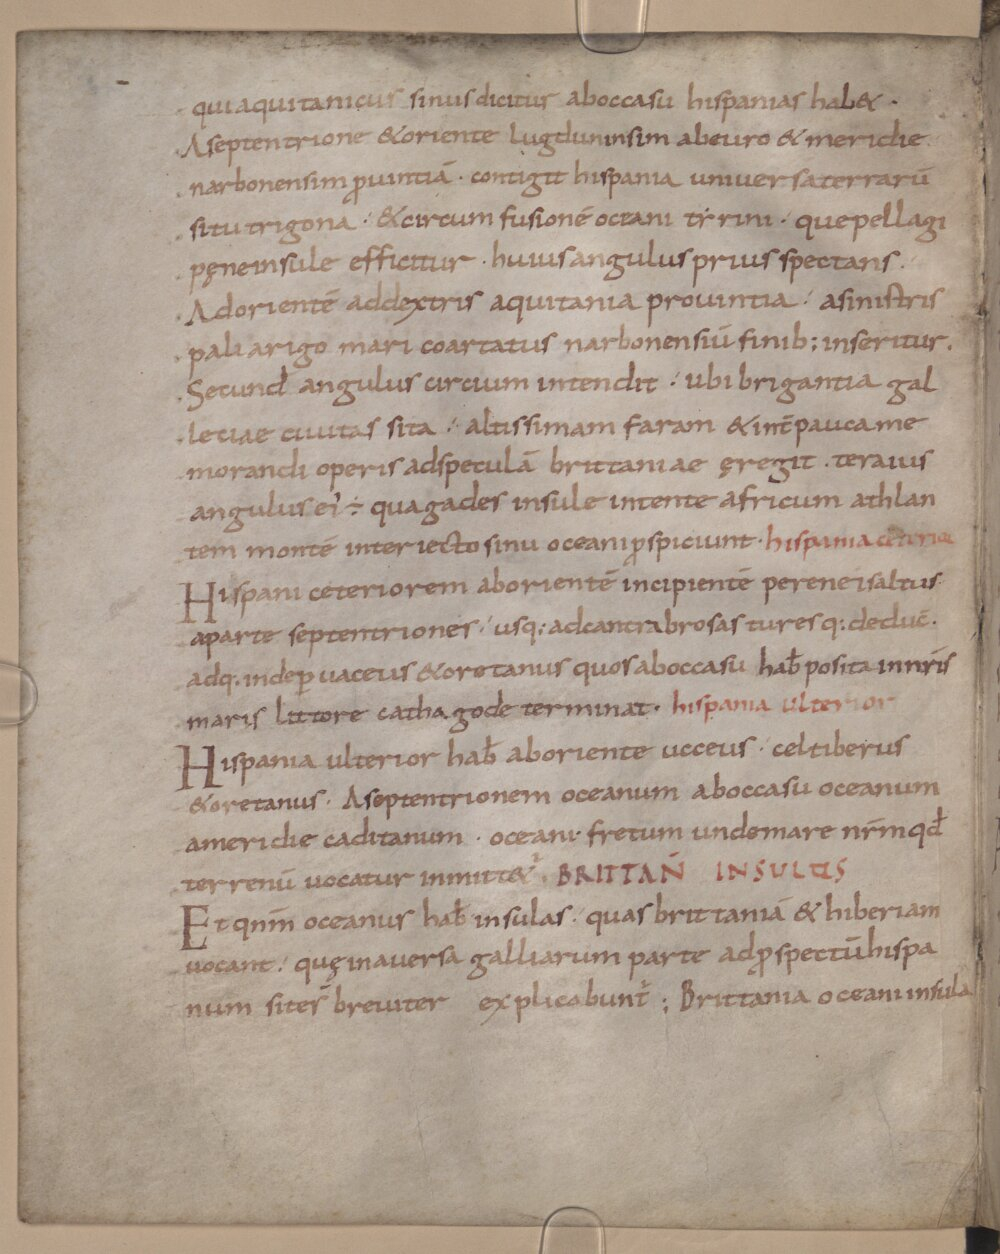 qui aquitanicus sinus dicitur aboccasu hispanias hab& ·
Aseptentrione &oriente lugduninsim abeuro & meridie
narbonensim ꝓuintiā · contigit hispania universa terrarū
situ trigona · &circum fusionē oceani tirrini · que pellagi
pęne insule efficitur · huius angulus prius spectans ·
Ad orientē addextris aquitania provintia · asinistris
pali arigo mari coartatus narbonensiū finib; inseritur ·
Secund angulus circium intendit · ubi brigantia gal
leciae civitas sita · altissimam faram & int̄ pauca me
morandi operis adspeculā brittaniae ęregit · teraius
angulus ei ÷ qua gades insule intente africum athlan
tem montē interiecto sinu oceani ꝓspiciunt · hispania
Hispani ceteriorem aborientē incipientē pereneisaltus
aparte septentriones · usq; adcantrabros asturesq; deduc̄ ·
adq · inde ꝑ uaceus &oretanus quos aboccasu hab̄ posita innr̄is
maris littore cathagode terminat · hispania ulterior
Hispania ulterior hab̄ aboriente ucceus · celtiberus
&oretanus · Aseptentrionem oceanum aboccasu oceanum
ameridie caditanum · oceani fretum unde mare nr̄m qd̄
terrenū vocatur inmitt& · BRITTAN̄ INSULIS
Et qnm̄ oceanus hab̄ insulas · quas brittaniā & hiberiam
vocant · quę inaversa galliarum parte adꝓspectū hispa
num sites breviter explicabunt̄ ; Brittania oceani insula